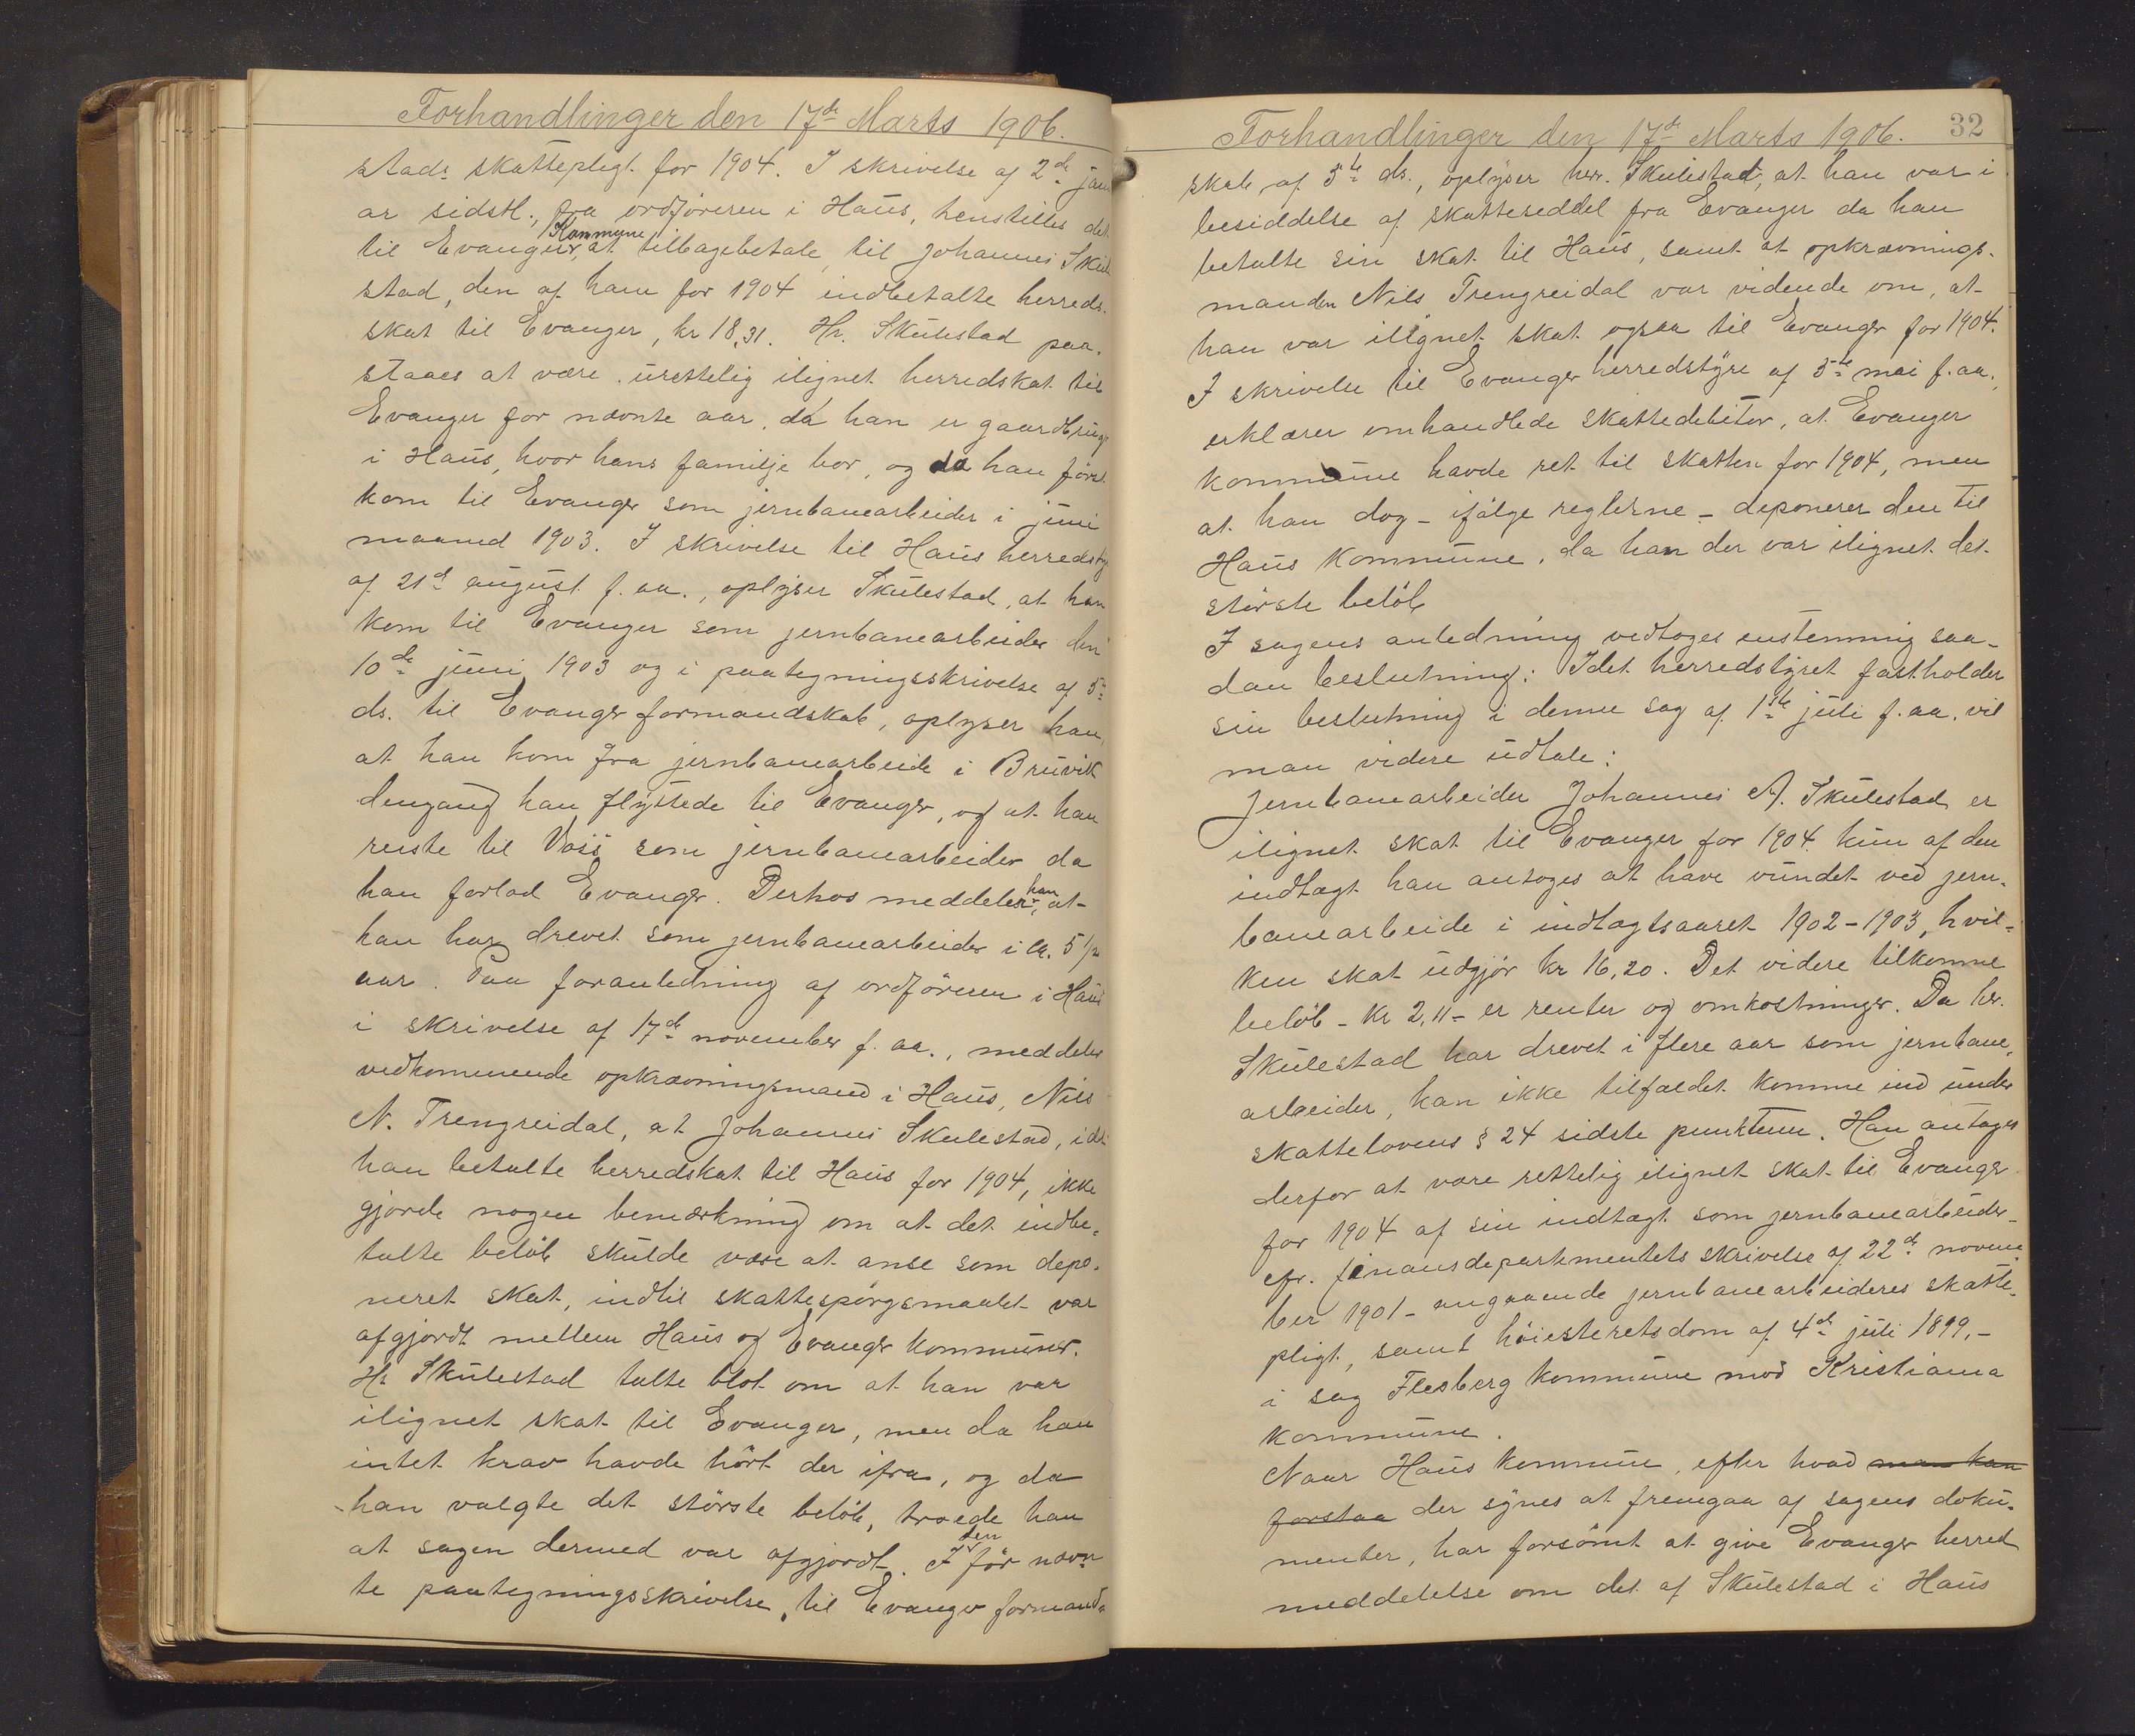 Forhandlinger den 17de Marts 1906.
stads skattepligt for 1904. I skrivelse af 2de jan
ar sidstl., fra ordføreren i Haus, henstilles det
til Evanger Kommune, at tilbagebetale til Johannes Skule
stad, den af ham for 1904 indbetalte herreds-
skat til Evanger, kr 18,31. Hr. Skulestad paa-
staaes at være urettelig ilignet herredskat til
Evanger for nævnte aar, da han er gaardbruger
i Haus, hvor hans familje bor, og da han først
kom til Evanger som jernbanearbeider i juni
maaned 1903. I skrivelse til Haus herredsty
af 21de august f. aa., oplyser Skulestad, at han
kom til Evanger som jernbanearbeider den
10de juni 1903 og i paategningsskrivelse af 5te
ds. til Evanger formandskab, oplyser han,
at han kom fra jernbanearbeide i Bruvik
dengang han flyttede til Evanger, og at han
reiste til Voss som jernbanearbeider da
han forlod Evanger. Derhos meddeler han, at
han har drevet som jernbanearbeider i ca. 5 1/2
aar. Paa foranledning af ordføreren i Haus
i skrivelse af 17de november f. aa., meddeler
vedkommende opkrævningsmand i Haus, Nils
N. Trengreidal, at Johannes Skulestad, idet
han betalte herredskat til Haus for 1904, ikke
gjorde nogen bemærkning om at det indbe-
talte beløb skulde være at anse som depo-
neret skat, indtil skattespørgsmaalet var
afgjordt mellem Haus og Evanger kommuner.
Hr Skulestad talte blot om at han var
ilignet skat til Evanger, men da han
intet krav havde hørt der ifra, og da
han valgte det største beløb, troede han
at sagen dermed var afgjordt. I den før nævn
te paategningsskrivelse, til Evanger formand-
Forhandlinger den 17de Marts 1906. 32
skab af 5te ds., oplyser herr. Skulestad, at han var i
besiddelse af skatteseddel fra Evanger da han
betalte sin skat til Haus, samt at opkrævnings-
manden Nils Trengreidal var vidende om, at
han var ilignet skat ogsaa til Evanger for 1904.
I skrivelse til Evanger herredstyre af 5te mai f. aa.,
erklærer omhandlede skattedebitor, at Evanger
kommune havde ret til skatten for 1904, men
at han dog - ifølge reglerne - deponerer den til
Haus kommune, da han der var ilignet det
største beløb
I sagens anledning vedtoges enstemmig saa-
dan beslutning: Idet herredstyret fastholder
sin beslutning i denne sag af 1ste juli f. aa. vil
man videre udtale:
Jernbanearbeider Johannes A. Skulestad er
ilignet skat til Evanger for 1904 kun af den
indtægt han antoges at have vundet ved jern-
banearbeide i indtægtsaaret 1902-1903, hvil-
ken skat udgjør kr 16,20. Det videre tilkomne
beløb - kr 2,11 - er renter og omkostninger. Da hr.
Skulestad har drevet i flere aar som jernbane-
arbeider, kan ikke tilfældet komme ind under
skattelovens § 24 sidste punktum. Han antages
derfor at være rettelig ilignet skat til Evanger
for 1904 af sin indtægt som jernbanearbeider -
cfr. finansdepartementets skrivelse af 22de novem-
ber 1901 - angaaende jernbanearbeideres skatte-
pligt, samt høiesteretsdom af 4de juli 1899, -
i sag Flesberg kommune mod Kristiania
kommune.
Naar Haus kommune, efter hvad man kan
forstaa der synes at fremgaa af sagens doku-
menter, har forsømt at give Evanger herred
meddelelse om det af Skulestad i Haus